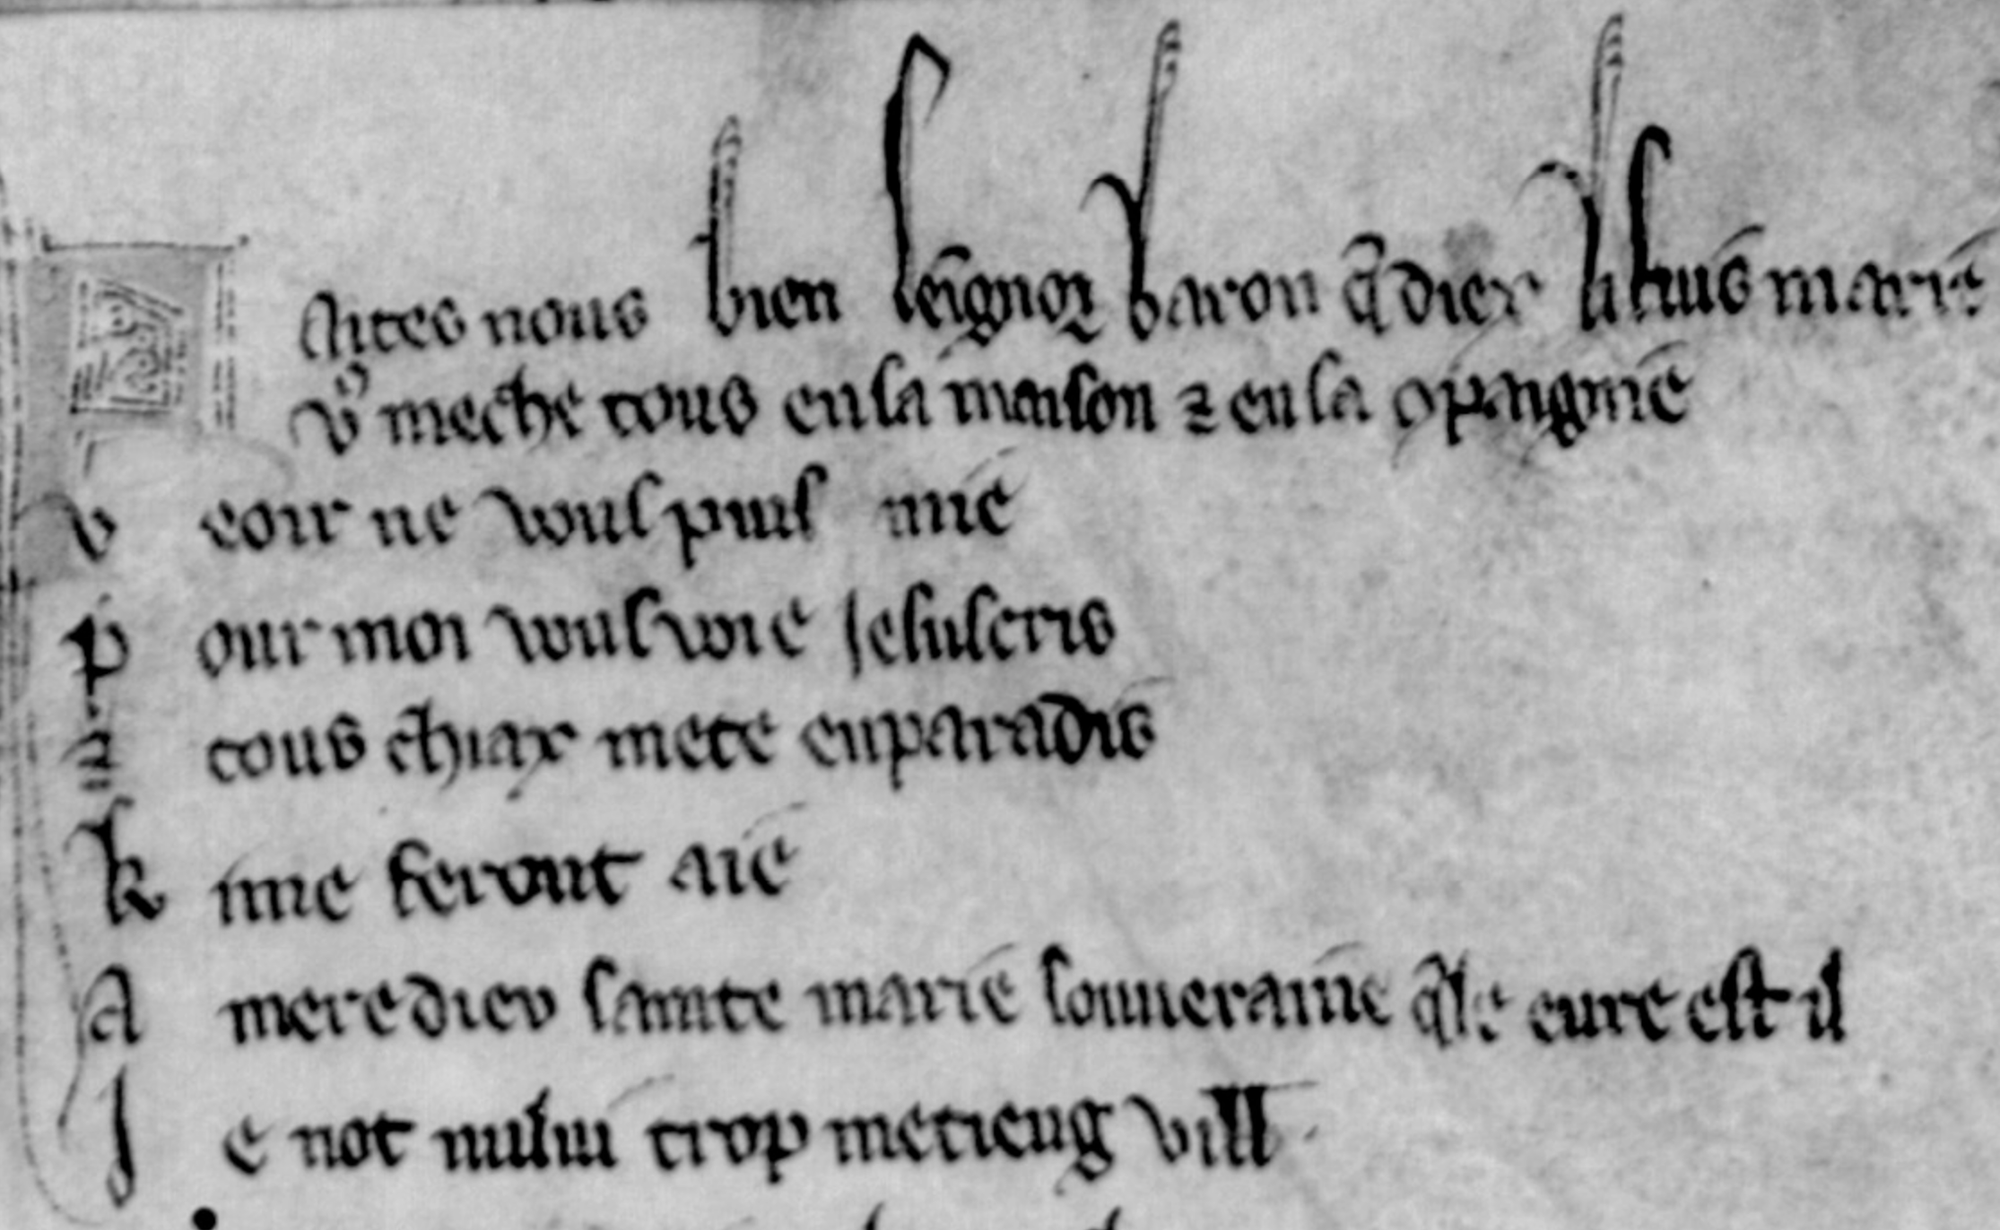 Faites nous bien seignor baron q̃ diex li fius marie
vꝰ meche tous en sa maison ⁊ en sa ꝯpaignie
v eoir ne wus puis mie
p our moi wus voie jesuscris
⁊ tous chiax mete en paradis
k i me feront aie
A mere dieu sainte marie souueraine q̃le eure est il
J e not nului trop me tieng vill